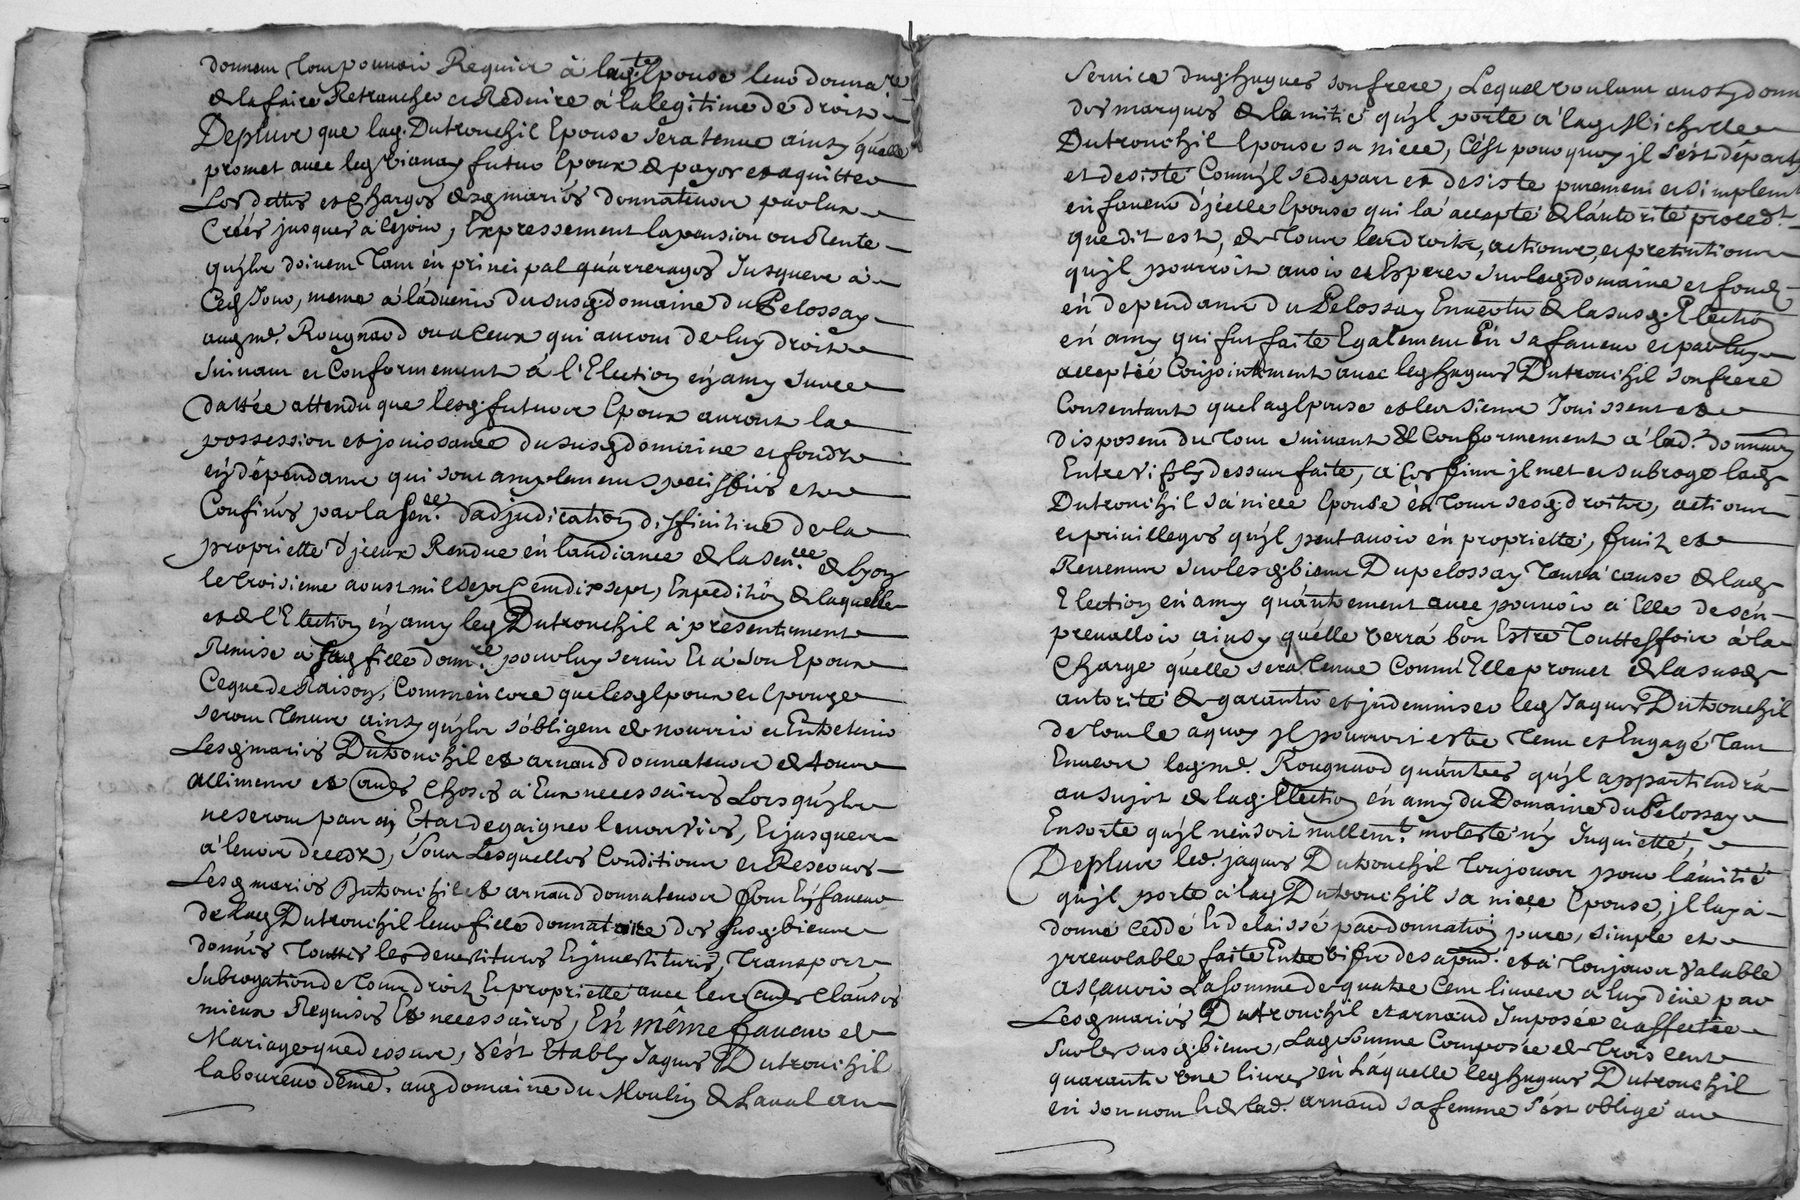 donnant tout pouvoir Requerir à lad. Epouse leur donnat.re
& la faire Retrancher et Reduire à la legitime de droit
De plus que lad. Dutronchil Epouse sera tenue ainsy qu'elle
promet avec led. Vianay futur Epoux de payer et aquitter
Les dettes et Charges desd. mariés donnateurs par eux
Créés jusques à ce jour, Expressement la pension ou Rente
qu'ils doivent tant en principal qu'arrerages Jusques à
Ced. Jour, meme à l'advenir du susd. domaine du Pelossay
aud. me. Rougnard ou a Ceux qui auront de luy droit
Suivant et Conformement à l'Election en amy sur ce
dattée attendu que lesd. futurs Epoux auront la
possession et jouissance du susd. domaine et fonds
en dépendants qui sont amplement speciffiés et
Confinés par la sen.ce d'adjudication diffinitive de la
proprietté d'jceux Rendue en l'audiance de la sen.cée de Lyon
le troisieme aoust mil sept Cent dix sept, Expedition de laquelle
et de l'Election en amy led. Dutronchil a presentement
Remise a sad. fille donat.re pour luy servir Et à son Epoux
Ce que de Raison, Comm'encore que lesd. Epoux et Epouze
seront tenus ainsy qu'ils s'obligent de nourrir et Entretenir
Lesd. mariés Dutronchil et arnaud donnateurs de tous
allimens et autres Choses à Eux necessaires Lors qu'ils
ne seront pas en Etat de gaigner leurs Vies, Et jusques
à leurs decedz, Sous Lesquelles Conditions et Reserves
Lesd. mariés Dutronchil et arnaud donnateurs font En faveur
de lad. Dutronchil leur fille donnatrice des susd. biens
donnés touttes les devestitures Et jnvestitures, Transport
Subrogation de tous droits Et proprietté avec les autres Clauses
mieux Requises Et necessaires, En même faveur de
Mariage que dessus, s'est Etably Jaques Dutronchil
laboureur deme. aud. domaine du Moulin de Laval au
Service dud. hugues son frere, Lequel voulant aussy donn
des marques de l'amitié qu'jl porte à lad. Michelle
Dutronchil Epouse sa niece, C'est pourquoy jl s'est départy
et desisté Comm'jl se depart et desiste purement et simplem.t
en faveur d'jcelle Epouse qui l'a accepté de l'autorité proced.t
que dit est, de tous les droits, actions, et pretentions
qu'jl pourroit avoir et Esperer sur led. domaine et fonds
en dependants du Pelossay En vertu de la susd. Election
en amy qui fut faite Egalement En sa faveur et par luy
acceptée Conjointement avec led. hugues Dutronchil son frere
Consentant que lad. Epouse et les siens Jouissent et
disposent du tout suivant & Conformement à lad. donnaon
Entre vifs Cy dessus faite, a Ces fins jl met et subroge lad.
Dutronchil sa niece Epouse en tous sesd. droits, actions
et privilleges qu'jl peut avoir en proprietté, fruits et
Revenus sur lesd. biens Du pelossay tant à cause de lad.
Election en amy qu'autrement avec pouvoir à Elle de s'en
prevalloir ainsy qu'elle verra bon Estre touttesffois à la
Charge qu'elle sera tenue Comm'Elle promet de la susd.
autorité de garantir et jndemniser led. Jaques Dutronchil
de tout ce a quoy jl pourroit estre tenu et Engagé tant
Envers led. me. Rougnard qu'autres qu'jl appartiendra
au sujet de lad. Election en amy du Domaine du Pelossay
En sorte qu'jl n'en soit nullem.t molesté n'y Inquietté,
De plus led. jaques Dutronchil toujours pour l'amitié
qu'jl porte à lad. Dutronchil sa niece Epouse, jl luy a
donné ceddé Et delaissé par donnation pure, simple et
jrrevocable faite Entre vifs des apnt. et à toujours Valable
a sçavoir La somme de quatre Cent livres à luy düe par
Lesd. mariés Dutronchil et arnaud Imposée et affectée
sur les susd. biens, Lad. somme Composée de trois Cent
quarante une livres en Laquelle led. hugues Dutronchil
en son nom & de lad. arnaud sa femme s'est obligé au